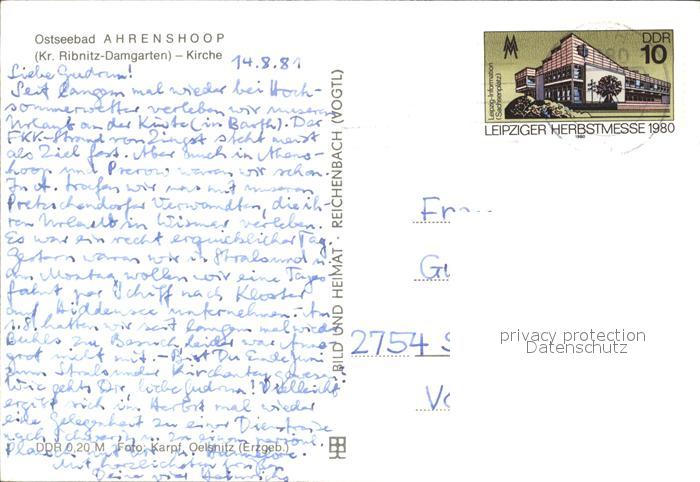 Ostseebad AHRENSHOOP
(Kr. Ribnitz-Damgarten) – Kirche
14.8.81
Liebe Gudrun!
Seit langem mal wieder bei Hoch-
sommerwetter verleben wir unseren
Urlaub an der Küste (in Barth). Der
FKK-Strand von Zingst steht meist
als Ziel fest. Aber auch in Ahrens-
hoop und Prerow waren wir schon.
In A. trafen wir uns mit unseren
Pretzschendorfer Verwandten, die ih-
ren Urlaub in Wismar verleben.
Es war ein recht erquicklicher Tag.
Gestern waren wir in Stralsund u.
am Montag wollen wir eine Tages-
fahrt per Schiff nach Kloster
auf Hiddensee unternehmen. Am
1.8. hatten wir seit langem mal wieder
zu Besuch, leider war
nicht mit. – Bist Du Ende Juni
zum Stralsunder Kirchentag gewesen?
Wie gehts Dir, liebe Gudrun? Vielleicht
ergibt sich im Herbst mal wieder
eine Gelegenheit zu einer Dienstreise
nach Schwerin u. zu einem
Mit herzlichsten Grüßen
Deine vier Heinrichs
DDR 0,20 M Foto: Karpf, Oelsnitz (Erzgeb.)
BILD UND HEIMAT · REICHENBACH (VOGTL)
DDR
10
Leipzig-Information
(Sachsenplatz)
LEIPZIGER HERBSTMESSE 1980
1980
2754 S
privacy protection
Datenschutz